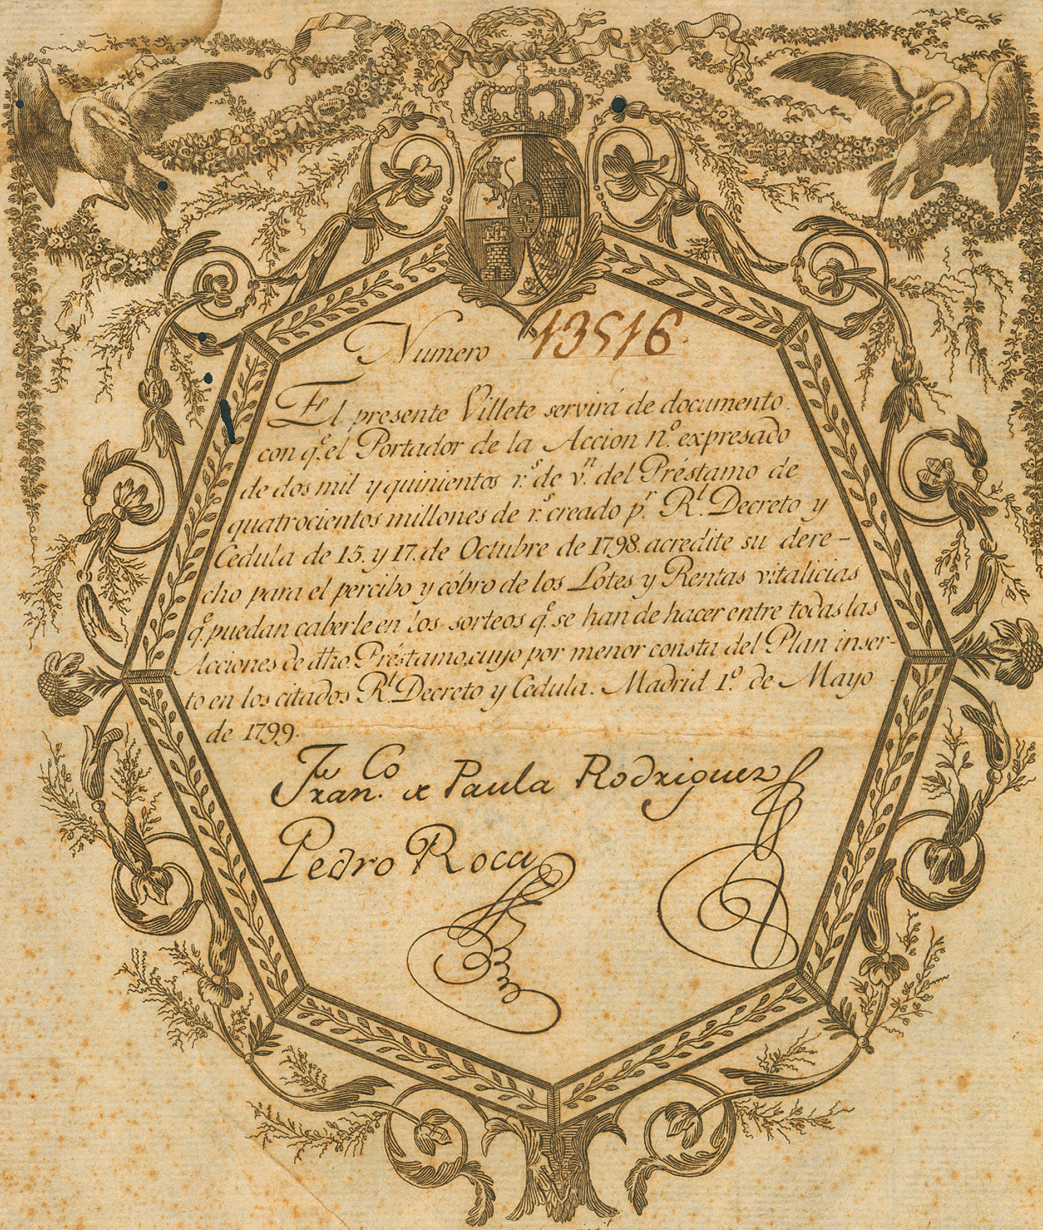 Numero 13516.
El presente Villete servirá de documento
con q.e el Portador de la Accion n.o expresado
de dos mil y quinientos r.s de v.n del Préstamo de
quatrocientos millones de r.s creado p.r R.l Decreto y
Cedula de 15. y 17. de Octubre de 1798. acredite su dere-
cho para el percibo y cobro de los Lotes y Rentas vitalicias
q.e puedan caberle en los sorteos q.e se han de hacer entre todas las
Acciones de dho. Préstamo, cuyo por menor consta del Plan inser-
to en los citados R.l Decreto y Cedula. Madrid 1.o de Mayo
de 1799.
Fran.co de Paula Rodriguez
Pedro Roca